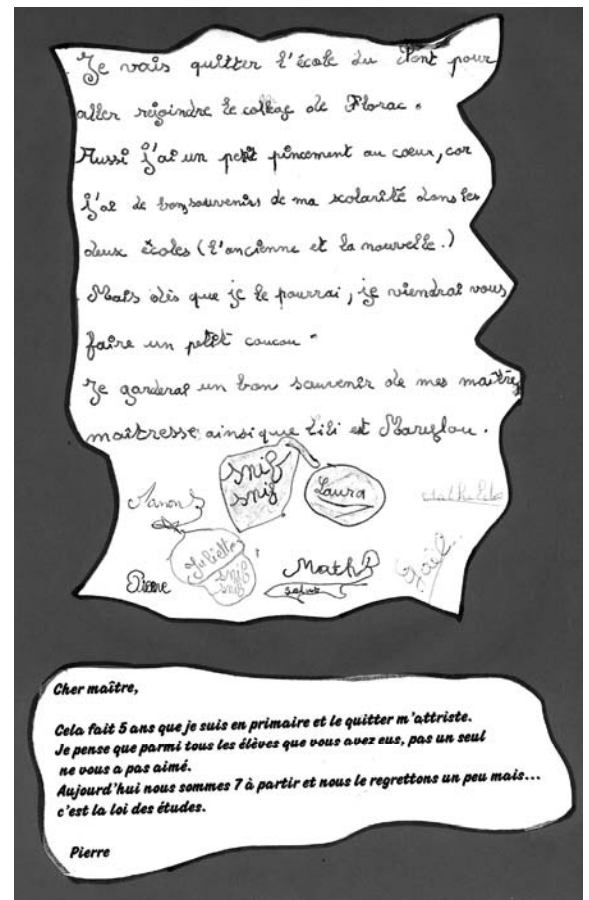 Je vais quitter l'école du Pont pour
aller rejoindre le collège de Florac.
Aussi j'ai un petit pincement au coeur, car
j'ai de bons souvenirs de ma scolarité dans les
deux écoles (l'ancienne et la nouvelle.)
Mais dès que je le pourrai, je viendrai vous
faire un petit coucou.
Je garderai un bon souvenir de mes maîtres,
maîtresse ainsi que Lili et Maryflou.
snif
snif
Manon
Laura
Mathilde
Juliette
snif
snif
Pierre
Math
salut
Gaël...
Cher maître,
Cela fait 5 ans que je suis en primaire et le quitter m'attriste.
Je pense que parmi tous les élèves que vous avez eus, pas un seul
ne vous a pas aimé.
Aujourd'hui nous sommes 7 à partir et nous le regrettons un peu mais...
c'est la loi des études.
Pierre